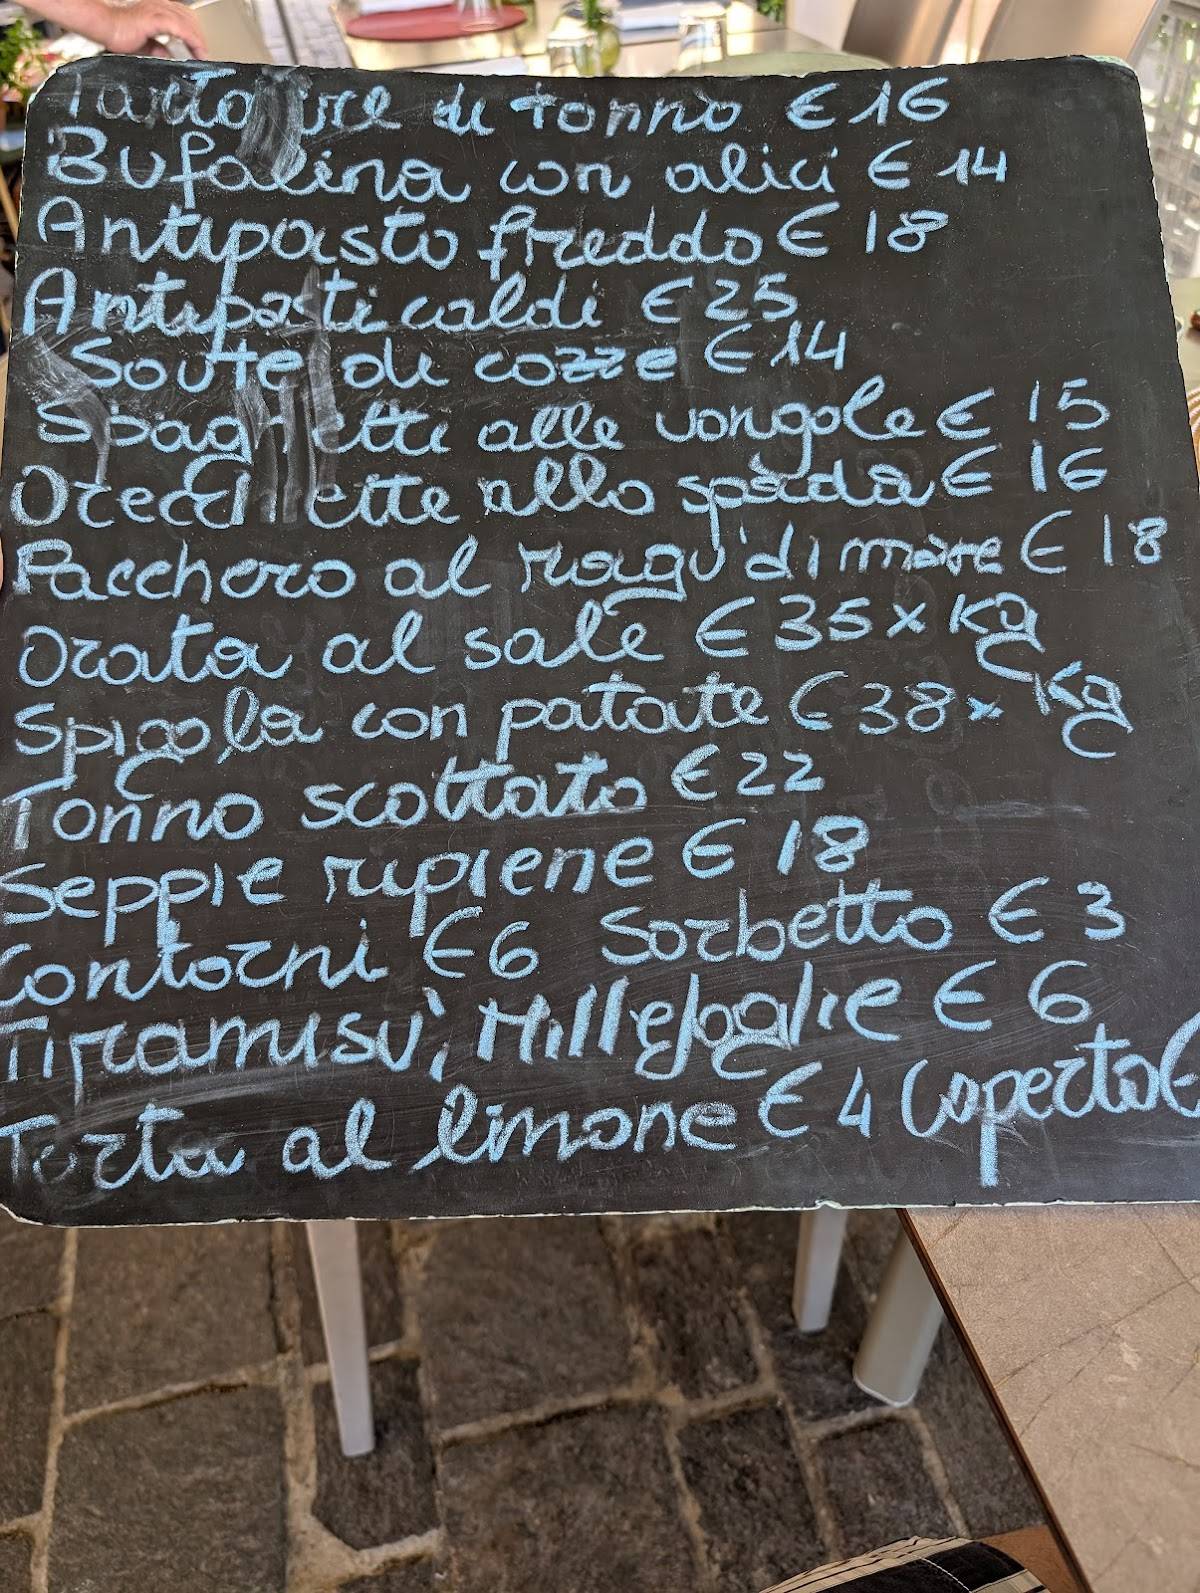 Tartare di tonno € 16
Bufalina con alici € 14
Antipasto freddo € 18
Antipasti caldi € 25
Soute di cozze € 14
Spaghetti alle vongole € 15
Orecchiette allo spada € 16
Pacchero al ragu' di mare € 18
Orata al sale € 35 x Kg
Spigola con patate € 38 x Kg
Tonno scottato € 22
Seppie ripiene € 18
Contorni € 6 Sorbetto € 3
Tiramisu', Millefoglie € 6
Torta al limone € 4 Coperto €